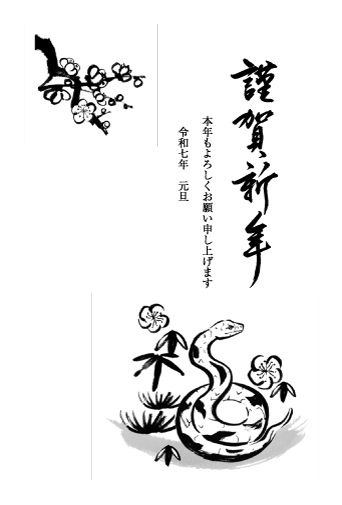 謹賀新年
本年もよろしくお願い申し上げます
令和七年　元旦